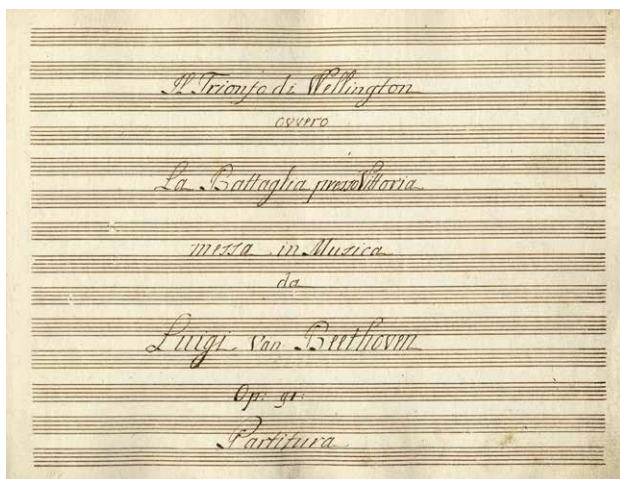 Il Trionfo di Wellington
ovvero
La Battaglia presso Vittoria
messa in Musica
da
Luigi Van Beethoven
Op: 91:
Partitura